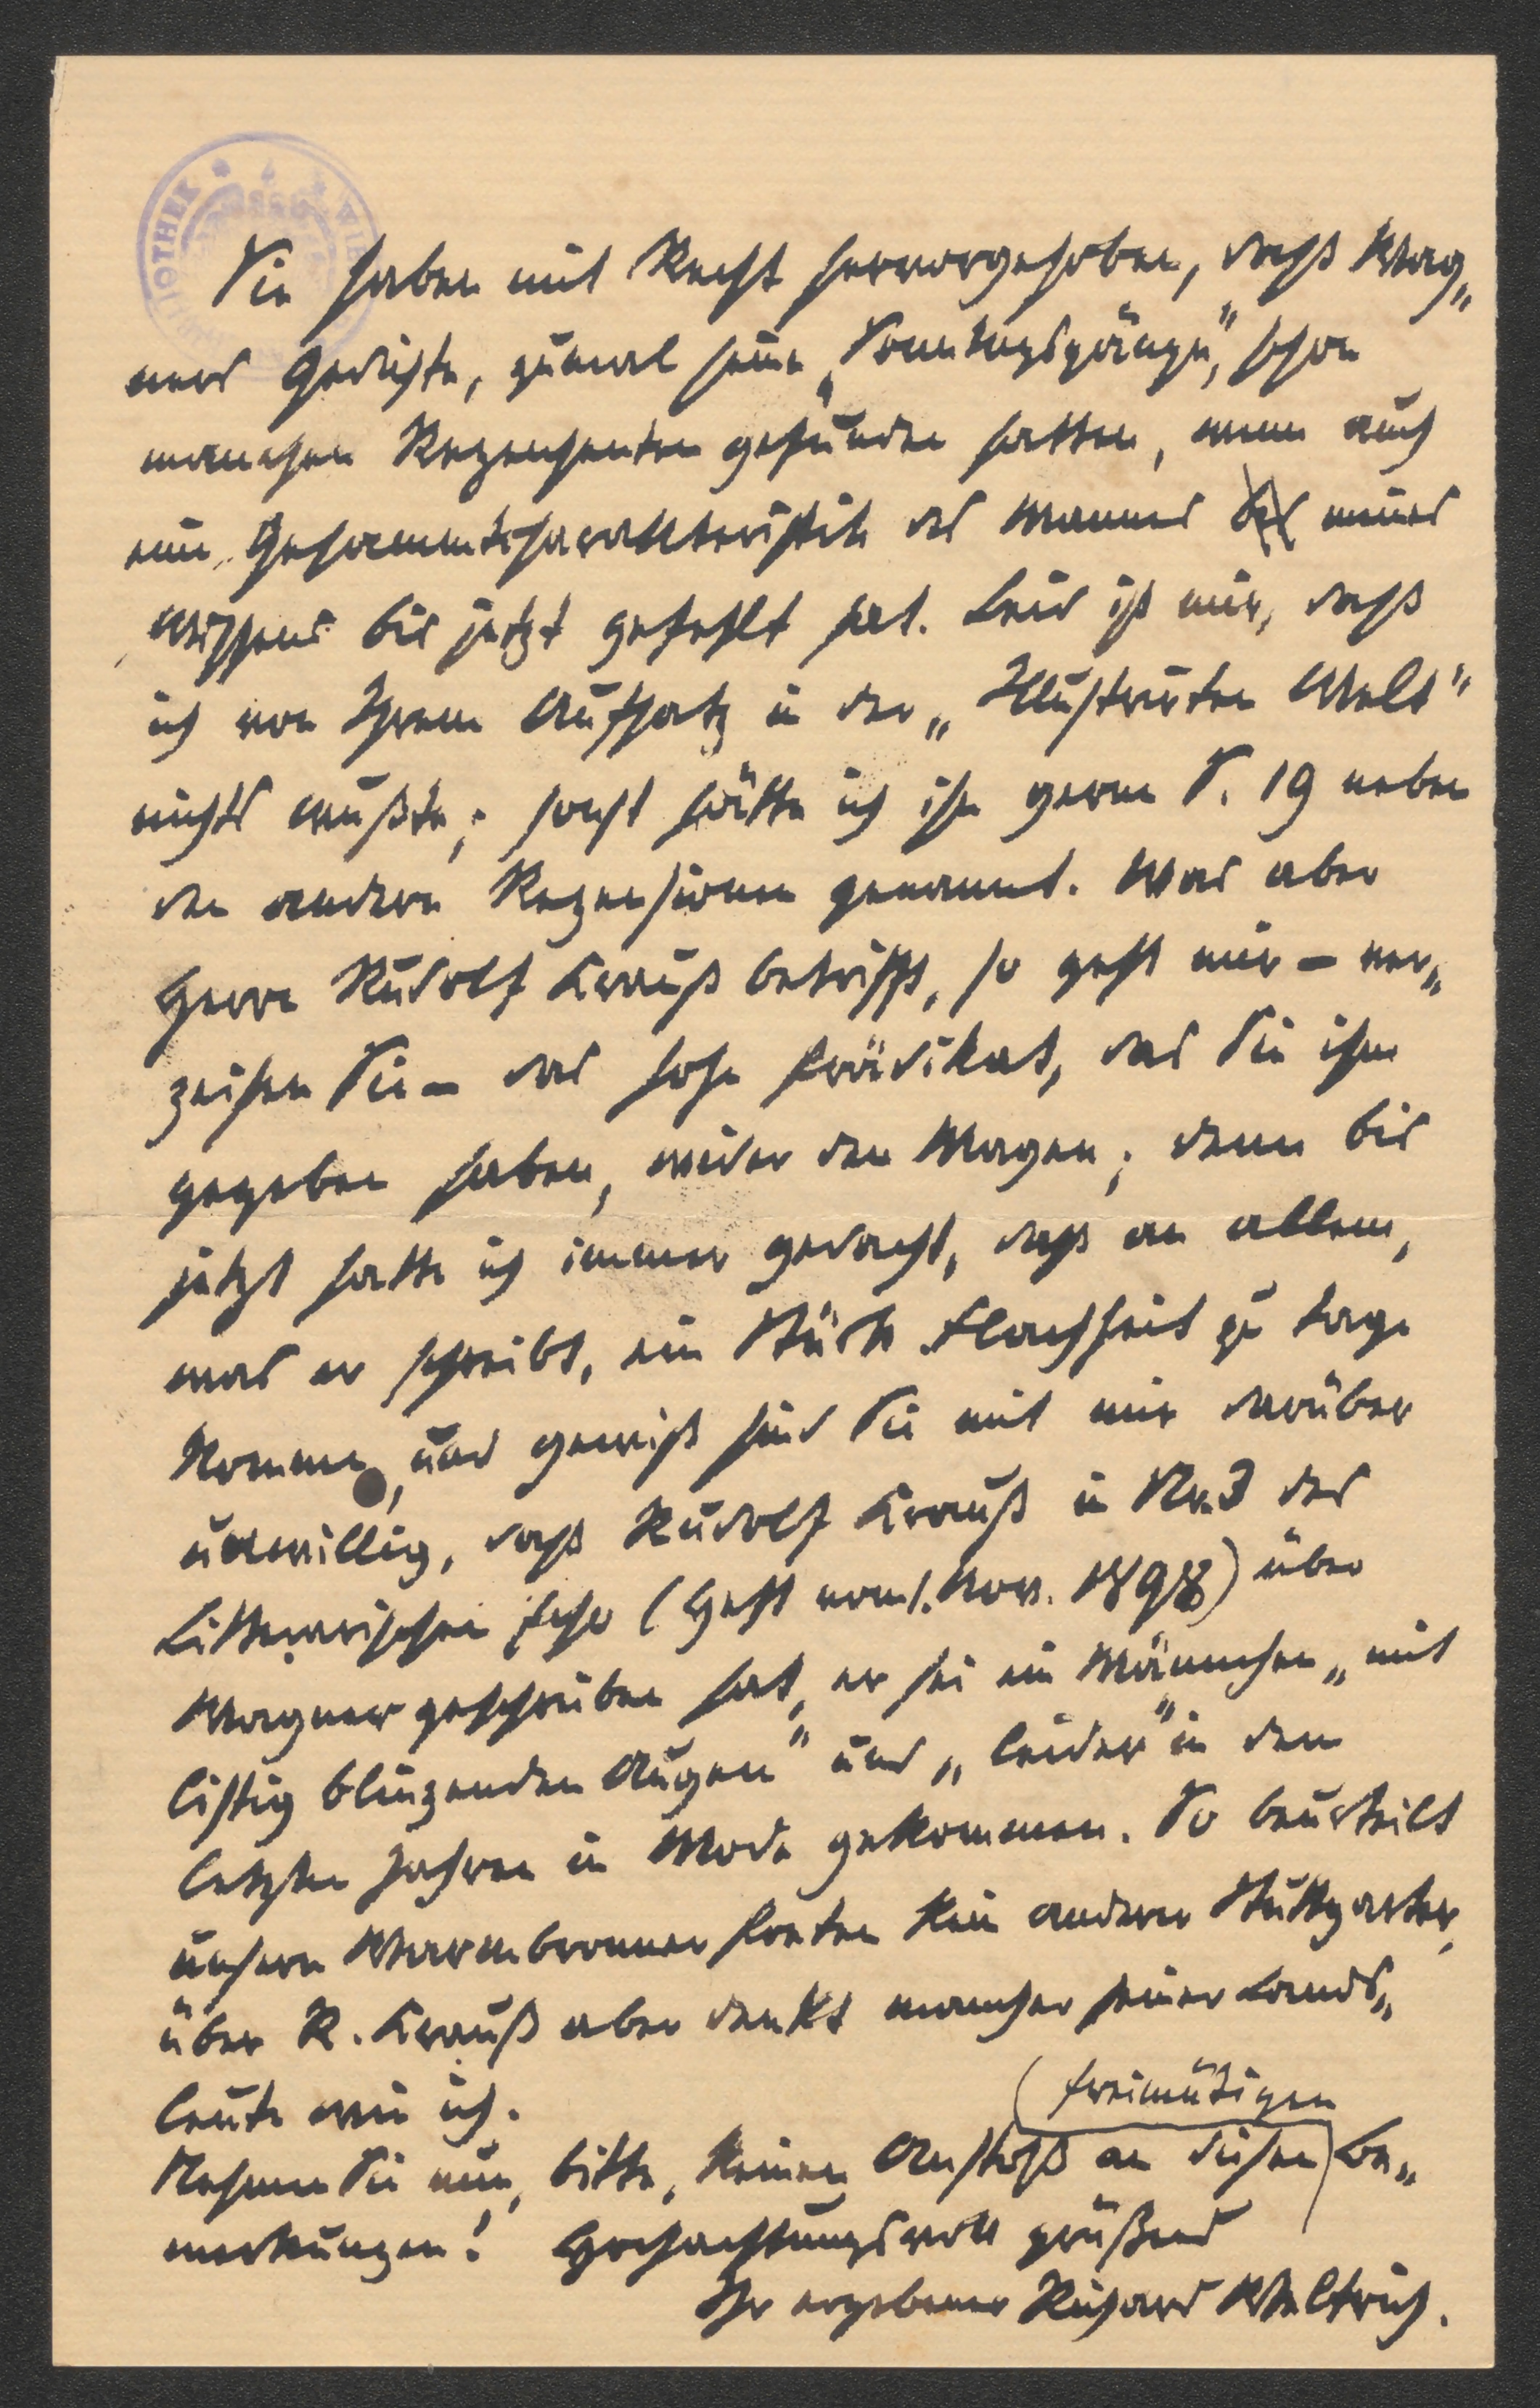 Sie haben mit Recht hervorgehoben, daß Wag„
ners Gedichte, zumal seine „Sonntagsgänge“, schon
manchen Rezensenten gefunden hatten, wenn auch
eine Gesammtcharakteristik des Mannes meines
Wissens bis jetzt gefehlt hat. Leid ist mir, daß
ich von Ihrem Aufsatz in der „Illustrirten Welt“
nichts wußte; sonst hätte ich ihn gerne S. 19 neben
den andern Rezensionen genannt. Was aber
Herrn Rudolf Krauß betrifft, so geht mir – ver„
zeihen Sie – das hohe Prädikat, das Sie ihm
gegeben haben, wider den Magen; denn bis
jetzt hatte ich immer gedacht, daß an allem,
was er schreibt, ein Stück Flachheit zu tage
komme, und gewiß sind Sie mit mir darüber
unwillig, daß Rudolf Krauß in Nr. 3 des
Litterarischen Echo (Heft vom 1. Nov. 1898) über
Wagner geschrieben hat, er sei ein Männchen „mit
listig blinzenden Augen“ und „leider“ in den
letzten Jahren in Mode gekommen. So beurteilt
unsern Warmbronner Poeten kein anderer Stuttgarter,
über R. Krauß aber denkt mancher seiner Lands„
leute wie ich.
freimütigen
Nehmen Sie nun, bitte, keinen Anstoß an diesen Be„
merkungen! Hochachtungsvoll grüßend
Ihr ergebener Richard Weltrich.